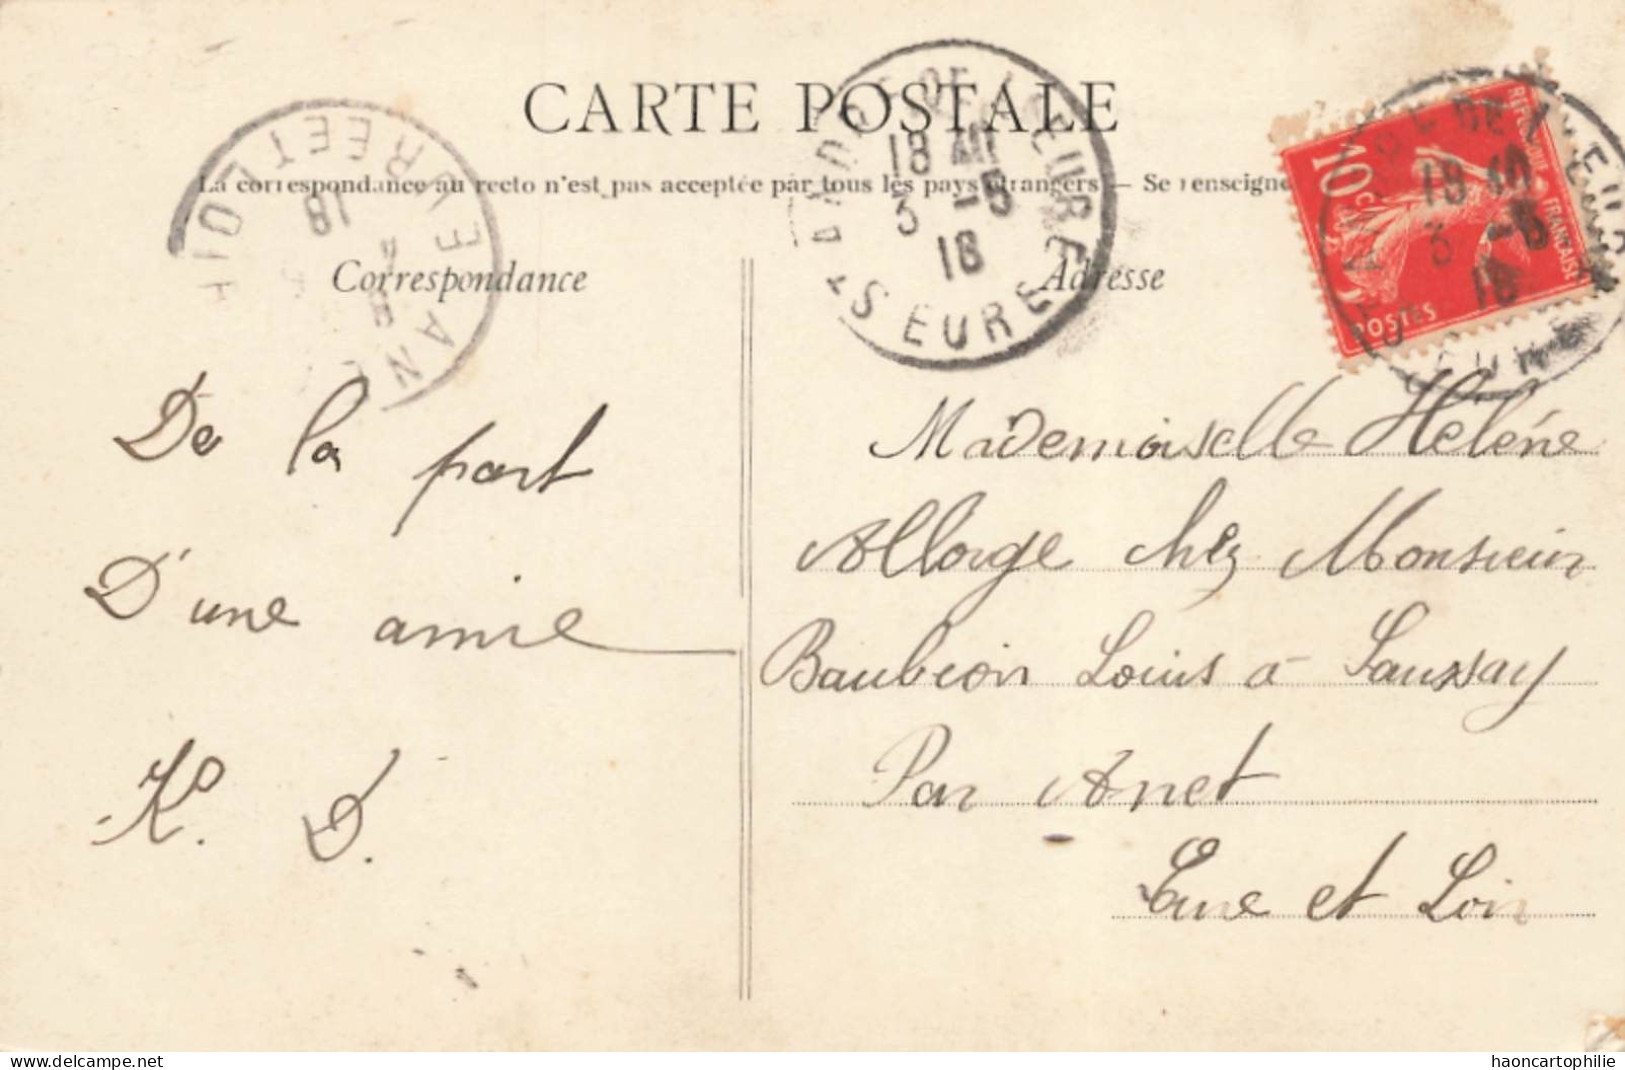 CARTE POSTALE
La correspondance au recto n'est pas acceptée par tous les pays étrangers — Se renseigne
Correspondance
Adresse
18 10
3 -5
16
EURE
18
10c
REPUBLIQUE FRANÇAISE
POSTES
18 10
3 -5
16
De la part
D'une amie
K. D.
Mademoiselle Heléne
Allorge chez Monsieur
Baubion Louis à Saussay
Par Anet
Eure et Loir
www.delcampe.net
haoncartophilie